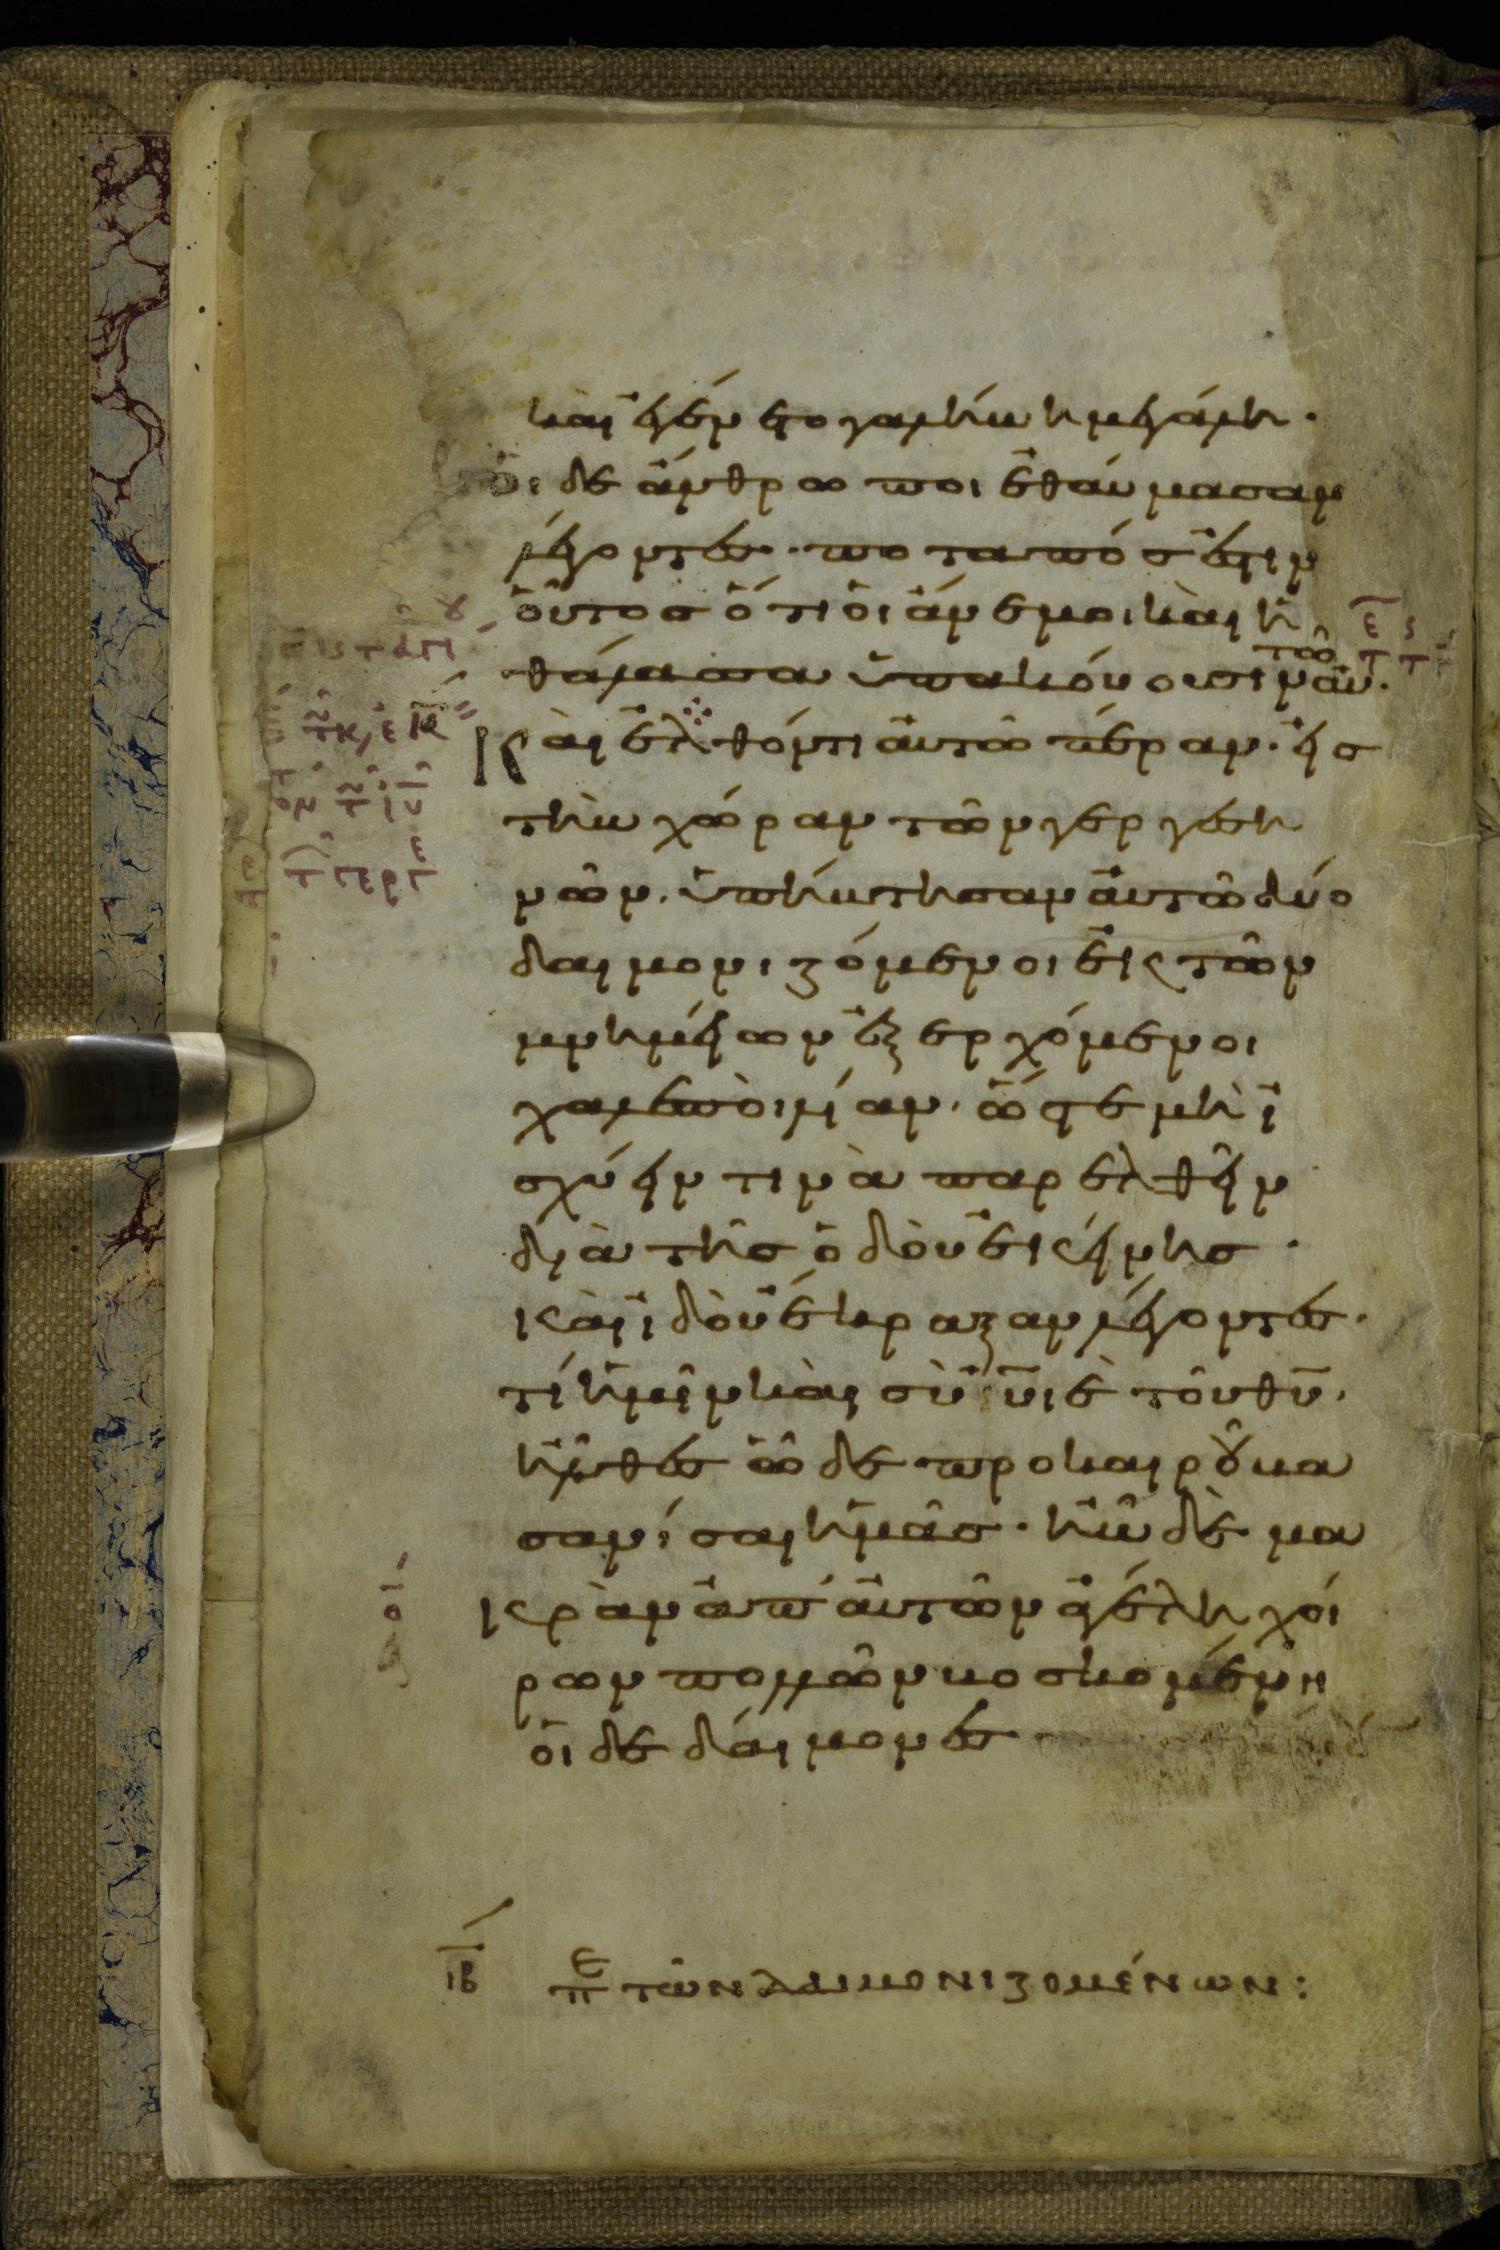 καὶ ἐγένετο γαλήνη μεγάλη.
ὁι δὲ ἄνθρωποι ἐθάυμασαν
λέγοντες. ποταπός ἐστιν
ὅυτος ὅτι ὁι ἄνεμοι καὶ ἡ
θάλασσα ὑπακόυουσιν ἀυτῶ.
Καὶ ἐλθόντι ἀυτῶ πέραν. εἰς
τὴν χώραν τῶν γεργεση
νῶν. ὑπήντησαν ἀυτῶ δύο
δαιμονιζόμενοι ἐκ τῶν
μνημείων ἐξερχόμενοι
χαλεποὶ λίαν. ὥστε μὴ ἰ
σχύειν τινὰ παρελθεῖν
διὰ τῆς ὁδοῦ ἐκείνης.
καὶ ἰδοὺ ἔκραξαν λέγοντες.
τί ἡμῖν καὶ σὺ ἰῦ υἱὲ τοῦ θῦ.
ἦλθες ὧδε προ καιροῦ βα
σανίσαι ἡμᾶς. ἦν δὲ μα
κρὰν ἀπ' ἀυτῶν ἀγέλη χοί
ρων πολλῶν βοσκομένη
ὁι δὲ δαίμονες
ιβ πε τῶν δαιμονιζομένων: